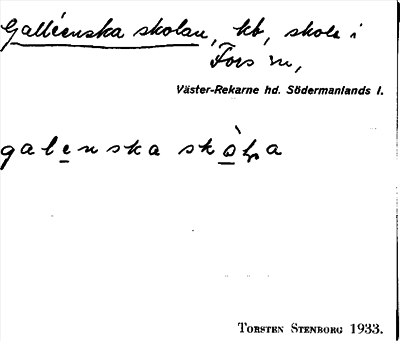 Galléenska skolan, kb, skola i
Fors sn,
Väster-Rekarne hd. Södermanlands l.
galenska skòlna
Torsten Stenborg 1933.